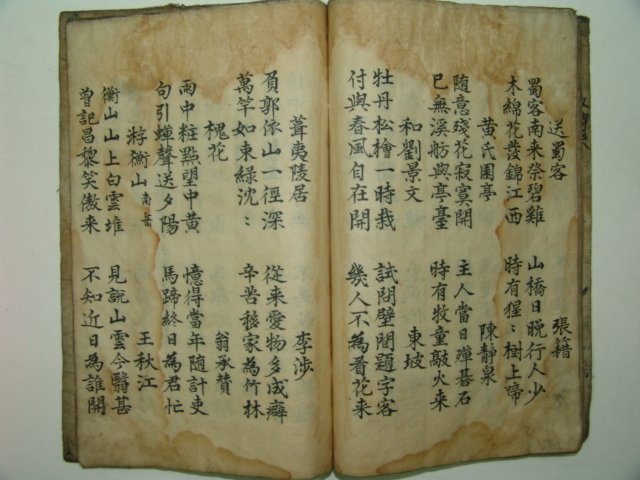 送蜀客　張籍
蜀客南来祭碧雞　山橋日晚行人少
木綿花發錦江西　時有猩〻樹上啼
黄氏園亭　陳静泉
随意殘花寂寞開　主人當日彈碁石
已無溪舫與亭臺　時有牧童敲火来
和劉景文　東坡
牡丹松檜一時栽　試問壁間題字客
付與春風自在開　幾人不為看花来
葺夷陵居　李涉
負郭依山一徑深　從来愛物多成癖
萬竿如束綠沈〻　辛苦移家為竹林
槐花　翁承賛
雨中粧點望中黄　憶得當年随計吏
句引蟬聲送夕陽　馬蹄終日為君忙
游衡山 南岳　王秋江
衡山山上白雲堆　見説山雲今翳甚
曽記昌黎笑傲来　不知近日為誰開